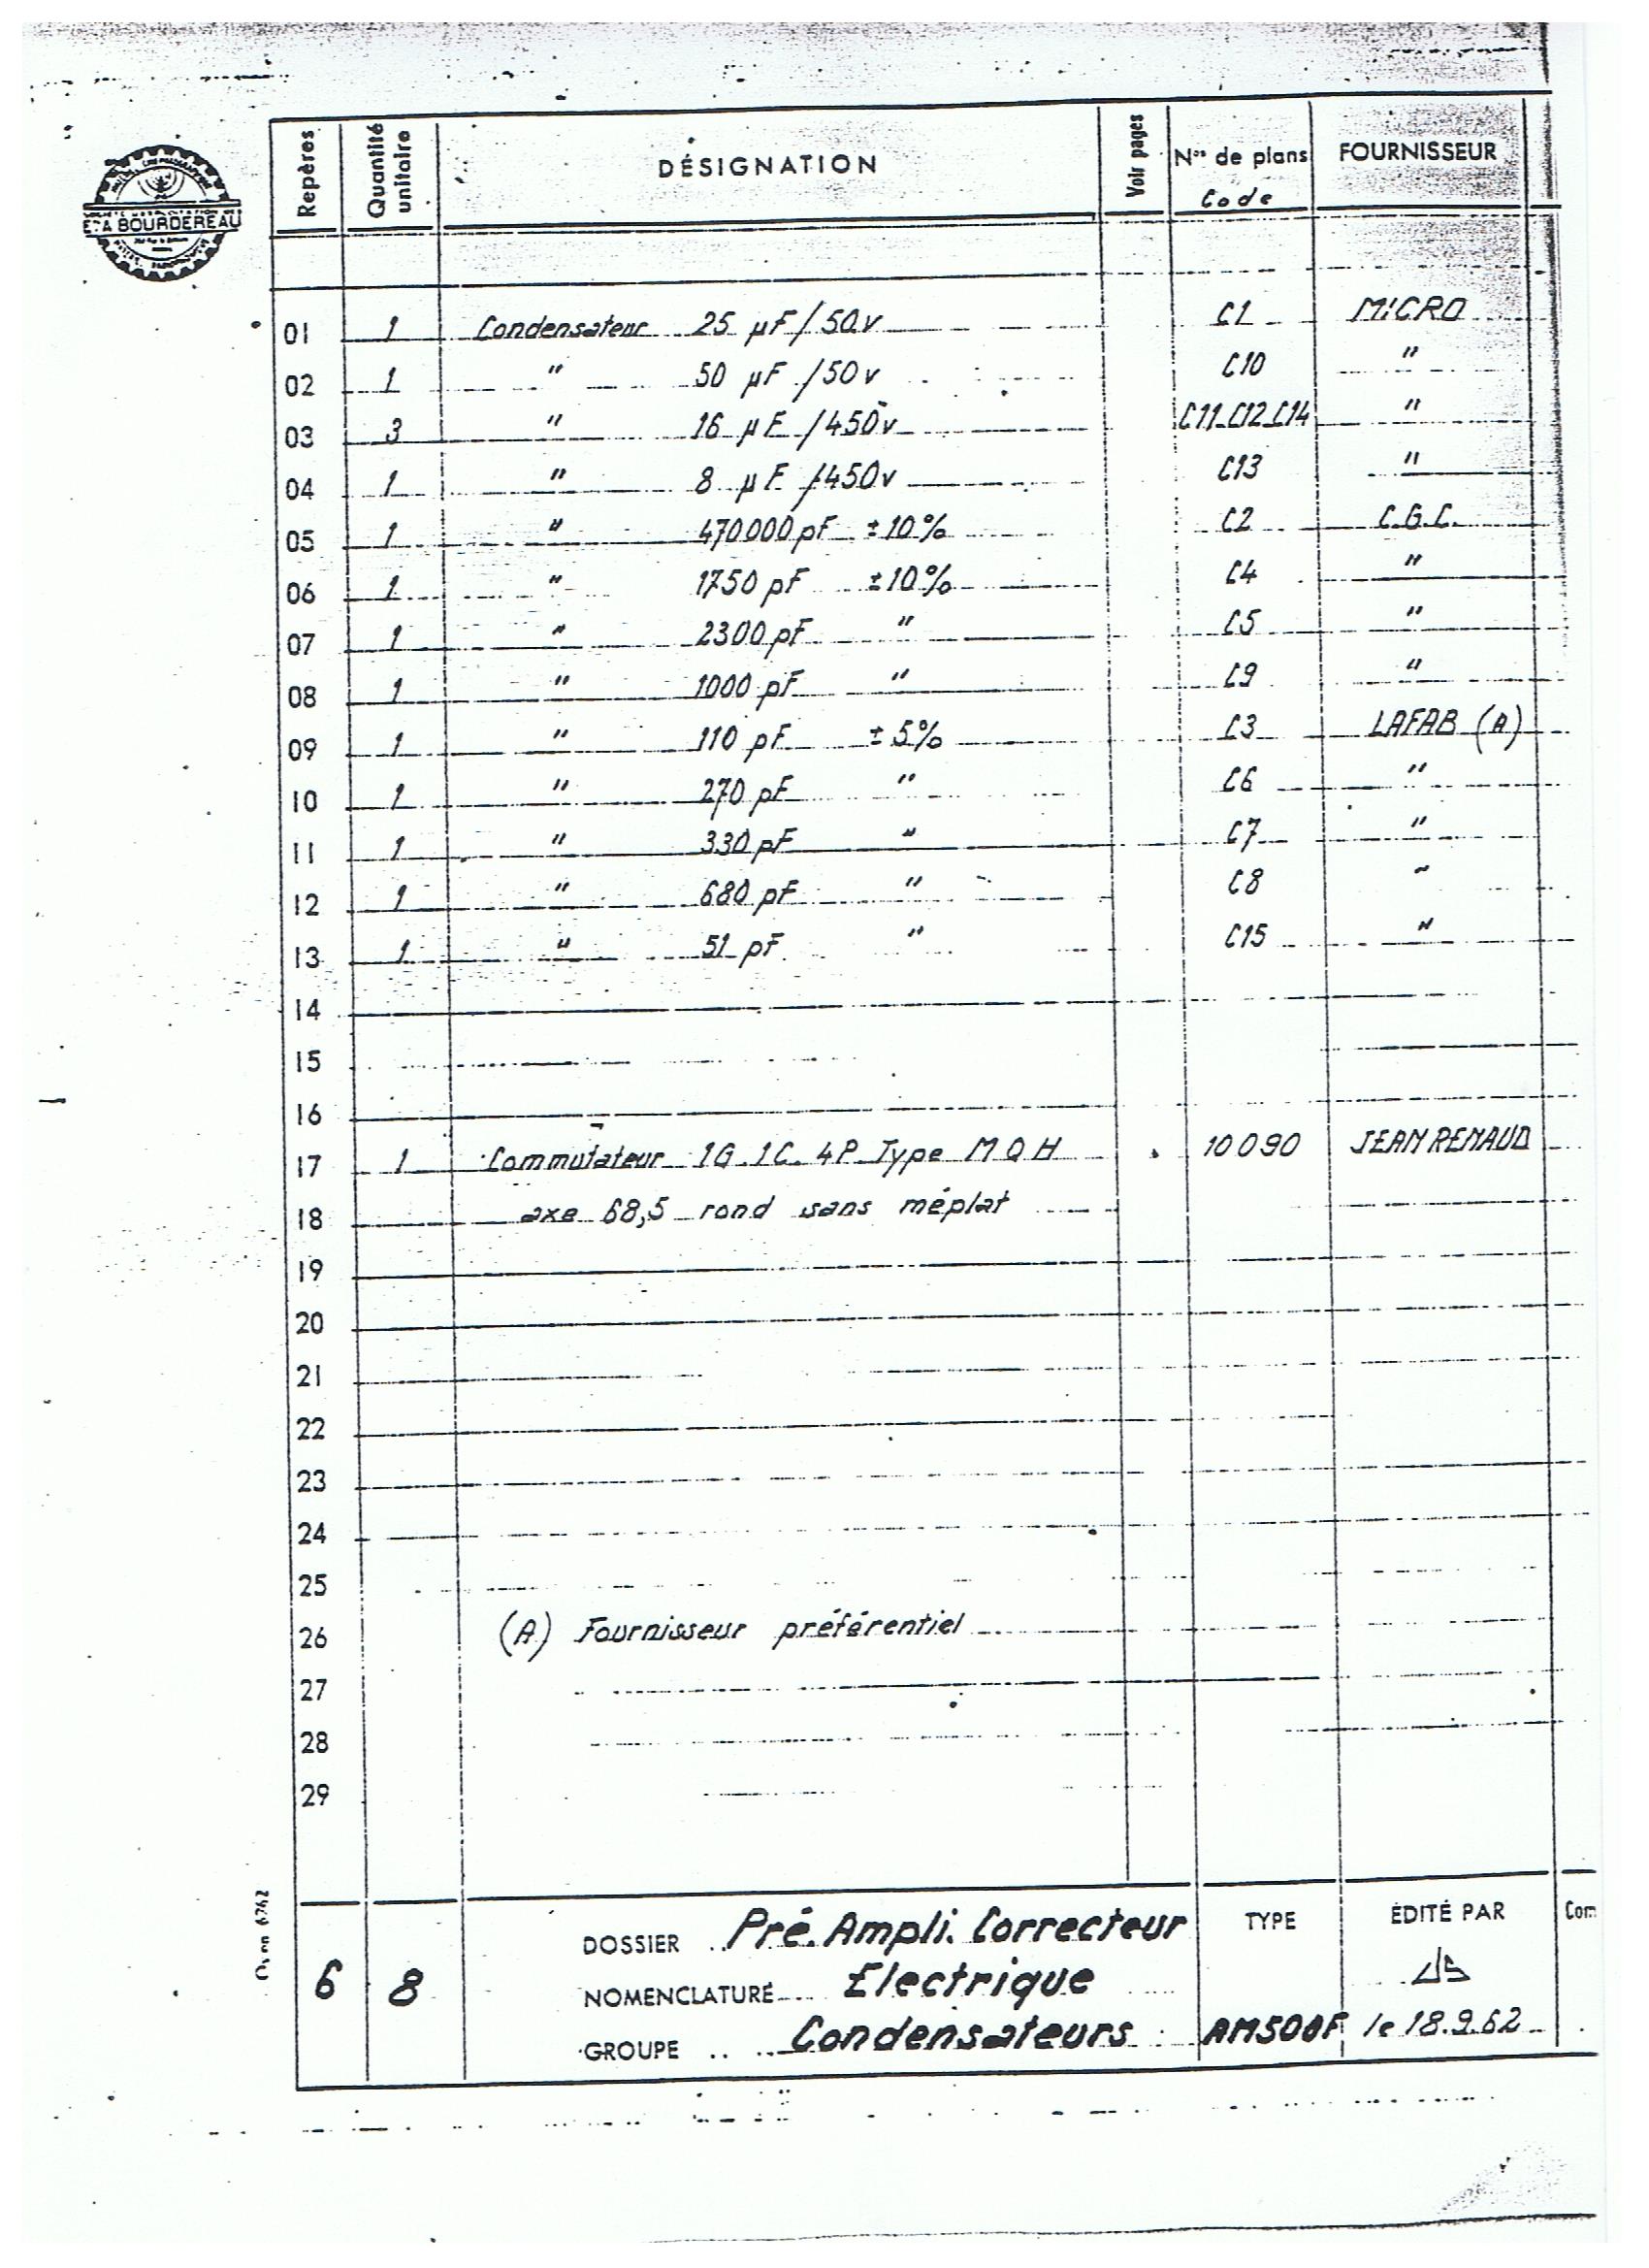 Repères Quantité unitaire DÉSIGNATION Voir pages Nos de plans Code FOURNISSEUR
Ets A BOURDEREAU
01 1 Condensateur 25 µF/50v C1 MICRO
02 1 " 50 µF/50v C10 "
03 3 " 16 µF/450v C11_C12_C14 "
04 1 " 8 µF/450v C13 "
05 1 " 470000pF ±10% C2 C.G.C.
06 1 " 1750 pF ±10% C4 "
07 1 " 2300 pF " C5 "
08 1 " 1000 pF " C9 "
09 1 " 110 pF ±5% C3 LAFAB (A)
10 1 " 270 pF " C6 "
11 1 " 330 pF " C7 "
12 1 " 680 pF " C8 "
13 1 " 51 pF " C15 "
14
15
16
17 1 Commutateur 1G.1C.4P.Type MQH 10090 JEAN RENAUD
18 axe 68,5 rond sans méplat
19
20
21
22
23
24
25
26 (A) Fournisseur préférentiel
27
28
29
DOSSIER Pré.Ampli.Correcteur TYPE ÉDITÉ PAR Com
6 8 NOMENCLATURE Electrique
GROUPE Condensateurs AM500F le 18.9.62